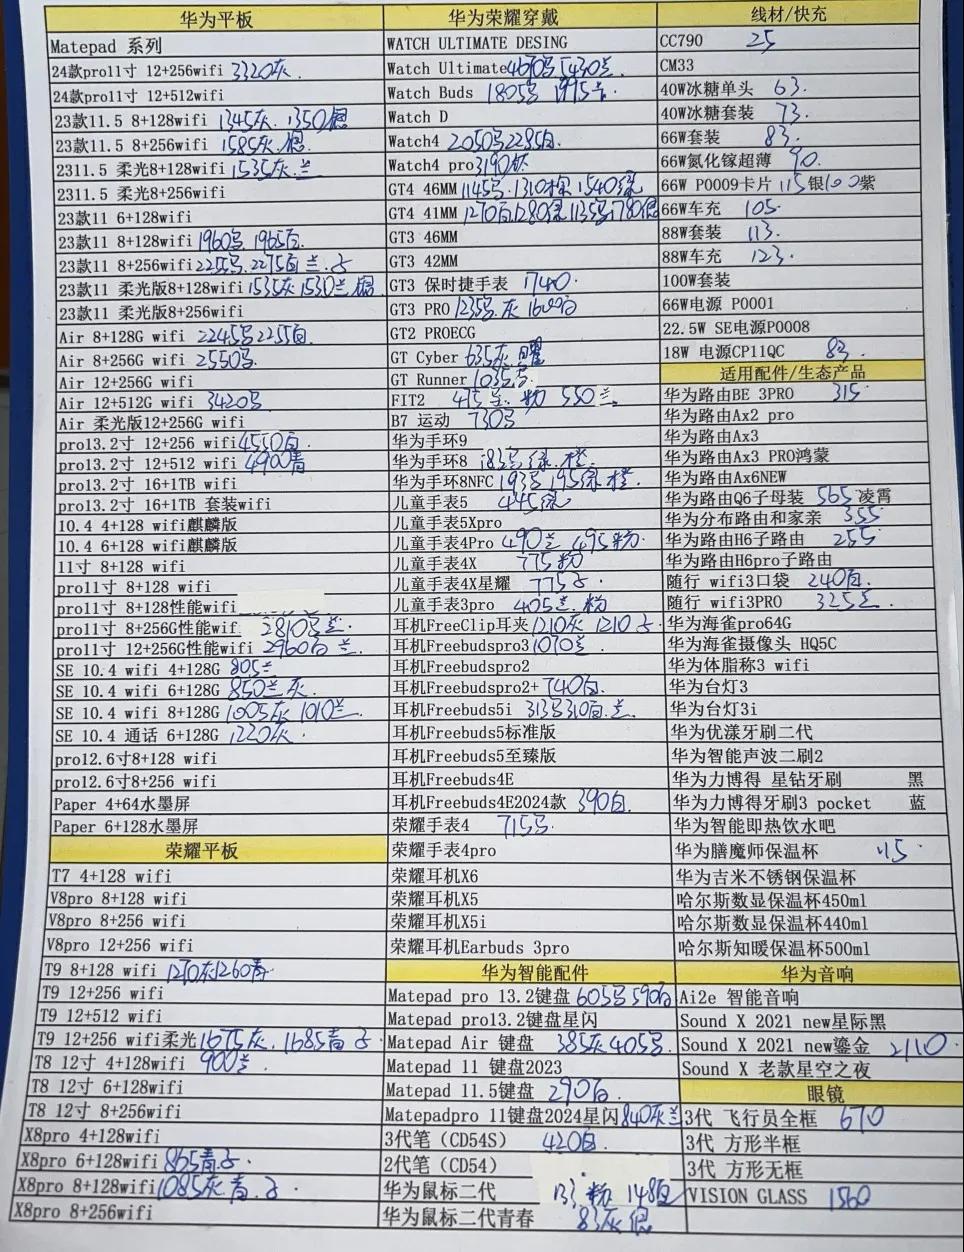 华为平板
Matepad 系列
24款pro11寸 12+256wifi 3320灰.
24款pro11寸 12+512wifi
23款11.5 8+128wifi 1345灰. 1350银
23款11.5 8+256wifi 1585灰.银
2311.5 柔光8+128wifi 1535灰.兰
2311.5 柔光8+256wifi
23款11 6+128wifi
23款11 8+128wifi 1960 1965白.
23款11 8+256wifi 2255 2275白 兰.
23款11 柔光版8+128wifi 1535灰 1530兰 银
23款11 柔光版8+256wifi
Air 8+128G wifi 2245 2255白
Air 8+256G wifi 2550
Air 12+256G wifi
Air 12+512G wifi 3420
Air 柔光版12+256G wifi
pro13.2寸 12+256 wifi 4550白
pro13.2寸 12+512 wifi 4900青
pro13.2寸 16+1TB wifi
pro13.2寸 16+1TB 套装wifi
10.4 4+128 wifi麒麟版
10.4 6+128 wifi麒麟版
11寸 8+128 wifi
pro11寸 8+128 wifi
pro11寸 8+128性能wifi
pro11寸 8+256G性能wif 2810 兰
pro11寸 12+256G性能wifi 2960白 兰.
SE 10.4 wifi 4+128G 805兰
SE 10.4 wifi 6+128G 850兰灰.
SE 10.4 wifi 8+128G 1005灰 1010兰.
SE 10.4 通话 6+128G 1220灰.
pro12.6寸8+128 wifi
pro12.6寸8+256 wifi
Paper 4+64水墨屏
Paper 6+128水墨屏
荣耀平板
T7 4+128 wifi
V8pro 8+128 wifi
V8pro 8+256 wifi
V8pro 12+256 wifi
T9 8+128 wifi 1270灰1260青.
T9 12+256 wifi
T9 12+512 wifi
T9 12+256 wifi柔光 1675灰. 1685青
T8 12寸 4+128wifi 900兰
T8 12寸 6+128wifi
T8 12寸 8+256wifi
X8pro 4+128wifi
X8pro 6+128wifi 865青
X8pro 8+128wifi 1085灰 青.
X8pro 8+256wifi
华为荣耀穿戴
WATCH ULTIMATE DESING
Watch Ultimate 4670 5430兰.
Watch Buds 1805 1995
Watch D
Watch4 2050 2285白.
Watch4 pro 3190
GT4 46MM 1145 1310棕 1540绿
GT4 41MM 1270白1280绿1135 1780银
GT3 46MM
GT3 42MM
GT3 保时捷手表 1740.
GT3 PRO 1235 灰 1600白
GT2 PROECG
GT Cyber 635灰 曜
GT Runner 1035
FIT2 415兰.粉 550兰.
B7 运动 730
华为手环9
华为手环8 183 绿.橙.
华为手环8NFC 193 195绿 橙.
儿童手表5 445绿
儿童手表5Xpro
儿童手表4Pro 490兰 495粉.
儿童手表4X 775粉
儿童手表4X星耀 775
儿童手表3pro 405兰.粉
耳机FreeClip耳夹 1210灰 1210
耳机Freebudspro3 1070兰
耳机Freebudspro2
耳机Freebudspro2+ 740白.
耳机Freebuds5i 313 310白.兰.
耳机Freebuds5标准版
耳机Freebuds5至臻版
耳机Freebuds4E
耳机Freebuds4E2024款 390白.
荣耀手表4 715
荣耀手表4pro
荣耀耳机X6
荣耀耳机X5
荣耀耳机X5i
荣耀耳机Earbuds 3pro
华为智能配件
Matepad pro 13.2键盘 605 590白
Matepad pro13.2键盘星闪
Matepad Air 键盘 385灰405
Matepad 11 键盘2023
Matepad 11.5键盘 290白.
Matepadpro 11键盘2024星闪 840灰兰
3代笔（CD54S） 420白.
2代笔（CD54）
华为鼠标二代 133粉 148白
华为鼠标二代青春 83灰 银
线材/快充
CC790 25
CM33
40W冰糖单头 63.
40W冰糖套装 73.
66W套装 83.
66W氮化镓超薄 90.
66W P0009卡片 115银100紫
66W车充 105.
88W套装 113.
88W车充 123.
100W套装
66W电源 P0001
22.5W SE电源P0008
18W 电源CP11QC 83.
适用配件/生态产品
华为路由BE 3PRO 315
华为路由Ax2 pro
华为路由Ax3
华为路由Ax3 PRO鸿蒙
华为路由Ax6NEW
华为路由Q6子母装 565凌霄
华为分布路由和家亲 355
华为路由H6子路由 255
华为路由H6pro子路由
随行 wifi3口袋 240白.
随行 wifi3PRO 325兰.
华为海雀pro64G
华为海雀摄像头 HQ5C
华为体脂称3 wifi
华为台灯3
华为台灯3i
华为优漾牙刷二代
华为智能声波二刷2
华为力博得 星钻牙刷 黑
华为力博得牙刷3 pocket 蓝
华为智能即热饮水吧
华为膳魔师保温杯 115
华为吉米不锈钢保温杯
哈尔斯数显保温杯450ml
哈尔斯数显保温杯440ml
哈尔斯知暖保温杯500ml
华为音响
Ai2e 智能音响
Sound X 2021 new星际黑
Sound X 2021 new鎏金 2110.
Sound X 老款星空之夜
眼镜
3代 飞行员全框 670
3代 方形半框
3代 方形无框
VISION GLASS 1560